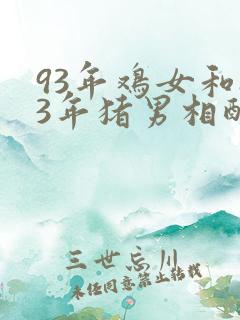 93年鸡女和
3年猪男相配
三世忘川
未经同意禁止转载